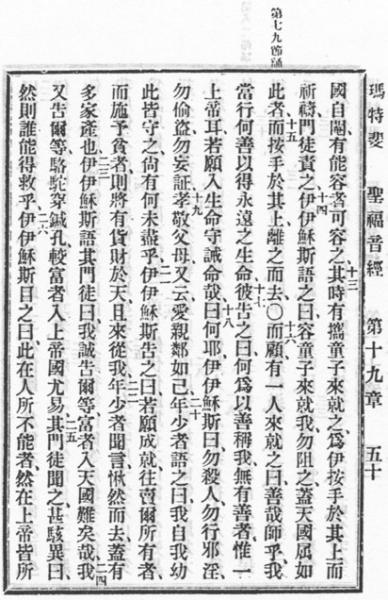 瑪特斐 聖福音經 第十九章 五十
第七九節誦
國自閹有能容者可容之、十三其時有攜童子來就之、爲伊按手於其上而
祈禱、門徒責之、十四伊伊穌斯語之曰、容童子來就我、勿阻之、蓋天國屬如
此者、十五而按手於其上、離之而去、〇十六而顧有一人來就之曰、善哉師乎、我
當行何善、以得永遠之生命、十七彼告之曰、何爲以善稱我、無有善者、惟一
上帝耳、若願入生命、守誡命哉、十八曰、何耶、伊伊穌斯曰、勿殺人、勿行邪淫、
勿偷盜、勿妄証、十九孝敬父母、又云、愛親鄰如己、二十年少者語之曰、我自我幼
此皆守之、尙有何未盡乎、二一伊伊穌斯告之曰、若願成就、往賣爾所有者、
而施予貧者、則將有貨財於天、且來從我、二二年少者聞言、愀然而去、蓋有
多家產也、二三伊伊穌斯語其門徒曰、我誠告爾等、富者入天國難矣哉、二四我
又告爾等、駱駝穿鍼孔、較富者入上帝國尤易、二五其門徒聞之、甚駭異曰、
然則誰能得救乎、二六伊伊穌斯目之曰、此在人所不能者、然在上帝皆所